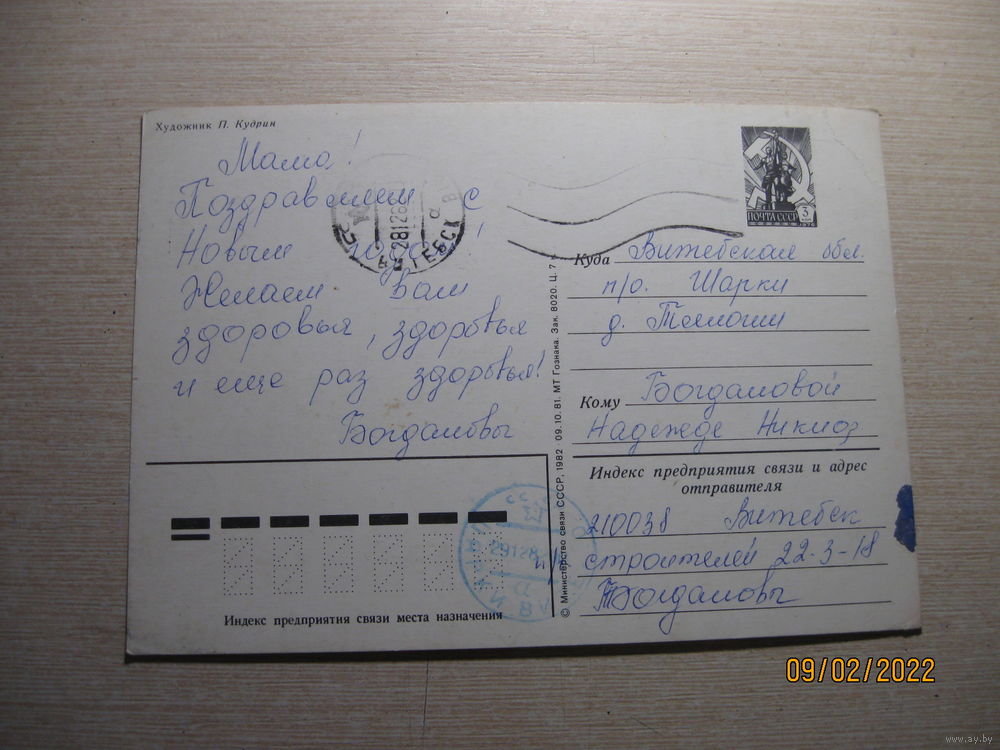 Художник П. Кудрин
Мама!
Поздравляем с
Новым годом!
Желаем Вам
здоровья, здоровья
и еще раз здоровья!
Богдановы
ПОЧТА СССР
3
Куда Витебская обл.
п/о. Шарки
д.
Кому Богдановой
Надежде
Индекс предприятия связи и адрес
отправителя
210038 Витебск
строителей 22-3-18
Богдановы
Индекс предприятия связи места назначения
© Министерство связи СССР, 1982 09.10.81. МТ Гознака. Зак. 8020. Ц. 7 к.
09/02/2022
www.ay.by